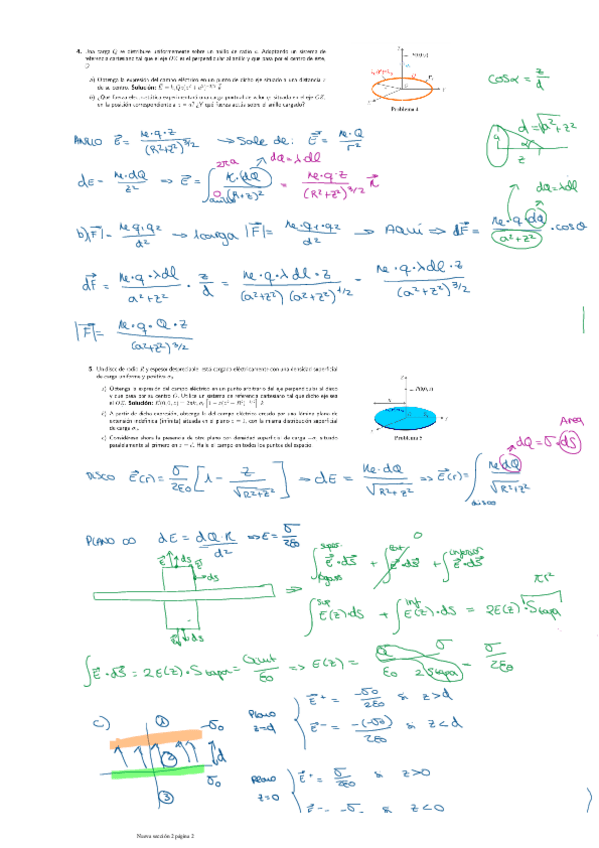 4. Una carga Q se distribuye uniformemente sobre un anillo de radio a. Adoptando un sistema de
referencia cartesiano tal que el eje OZ es el perpendicular al anillo y que pasa por el centro de éste,
a) Obtenga la expresión del campo eléctrico en un punto de dicho eje situado a una distancia z
de su centro. Solución:
en la posición correspondiente a z = a? ¿Y qué fuerza actúa sobre el anillo cargado?
Problema 4
cos α = z/d
d = √(R²+z²)
ANILLO E = (K·q·z)/(R²+z²)^3/2 → Sale de: E = (K·Q)/r²
dQ = λdl
dE = (K·dQ)/z² → E = ∫anillo (K·dQ)/(R+z)² = (K·q·z)/(R²+z²)^3/2 K
dQ = λdl
b) |F| = (K q1 q2)/d² → 1carga |F| = (K·q1·q2)/d² → Aquí ⇒ dF = (K·q·dQ)/(a²+z²) · cosα
dF = (K·q·λdl)/(a²+z²) · z/d = (K·q·λdl·z)/((a²+z²)(a²+z²)^1/2) = (K·q·λdl·z)/(a²+z²)^3/2
|F| = (K·q·Q·z)/(a²+z²)^3/2
5. Un disco de radio R y espesor despreciable está cargado eléctricamente con una densidad superficial
de carga uniforme y positiva σ₀
a) Obtenga la expresión del campo eléctrico en un punto arbitrario del eje perpendicular al disco
y que pasa por su centro O. Utilice un sistema de referencia cartesiano tal que dicho eje sea
el OZ. Solución:
b) A partir de dicha expresión, obtenga la del campo eléctrico creado por una lámina plana de
extensión indefinida (infinita) situada en el plano z = 0, con la misma distribución superficial
de carga σ₀
c) Considérese ahora la presencia de otro plano con densidad superficial de carga −σ₀ situado
paralelamente al primero en z = d. Halle el campo en todos los puntos del espacio
Problema 5
Area
dQ = σ·dS
DISCO E(r) = σ/2ε₀ [1 − z/√(R²+z²)] → dE = (K·dQ)/√(R²+z²) ⇒ E(r) = ∫disco (K dQ)/√(R²+z²)
PLANO ∞ dE = (dQ·K)/d² ⇒ E = σ/2ε₀
∫ E·dS + ∫ E·dS + ∫ E·dS
0
E dS
dS
dS
∫sup E(z)·dS + ∫inf E(z)·dS = 2E(z)·Stapa
πr²
∫E·dS = 2E(z)·Stapa = Qint/ε₀ ⇒ E(z) = Q/ε₀ σ/2Stapa = σ/2ε₀
c) ① −σ₀ Plano z=d E⁺ = −σ₀/2ε₀ si z>d
② d E⁻ = −(−σ₀)/2ε₀ si z<d
③ σ₀ Plano z=0 E⁺ = σ/2ε₀ si z>0
E⁻ = −σ si z<0
Nueva sección 2 página 2